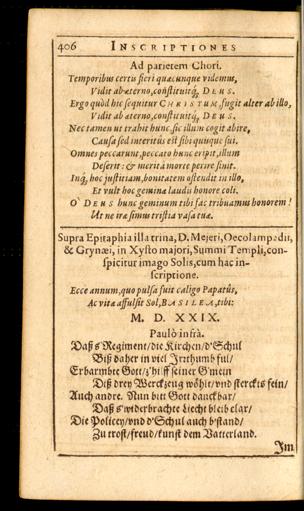 406 INSCRIPTIONES
Ad parietem Chori.
Temporibus certis fieri quæcunque videmus,
Vidit ab æterno, constituitq́; DEUS.
Ergo quòd hic sequitur CHRISTUM, fugit alter ab illo,
Vidit ab æterno, constituitq́; DEUS.
Nec tamen ut trahit hunc, sic illum cogit abire,
Causa sed interitûs est sibi quisque sui.
Omnes peccarunt, peccato hunc eripit, illum
Deserit: & meritâ morte perire sinit.
Inq́; hoc justitiam, bonitatem ostendit in illo,
Et vult hoc geminâ laudis honore coli.
O DEUS hunc geminum tibi fac tribuamus honorem!
Ut ne iræ simus tristia vasa tuæ.
Supra Epitaphia illa trina, D. Mejeri, Oecolampadii,
& Grynæi, in Xysto majori, Summi Templi, con-
spicitur imago Solis, cum hac in-
scriptione.
Ecce annum, quo pulsa fuit caligo Papatûs,
Ac vitæ affulsit Sol, BASILEA, tibi:
M. D. XXIX.
Paulò infrà.
Daß s'Regiment/die Kirchen/d'Schul
Biß daher in viel Irrthumb ful/
Erbarmbte Gott/z'hilff seiner G'mein
Diß drey Werckzeug wöhlt/und sterckts fein/
Auch andre. Nun bitt Gott danckbar/
Daß s'widerbrachte Liecht bleib clar/
Die Policey/und d'Schul auch b'stand/
Zu trost/freud/kunst dem Vatterland.
Im